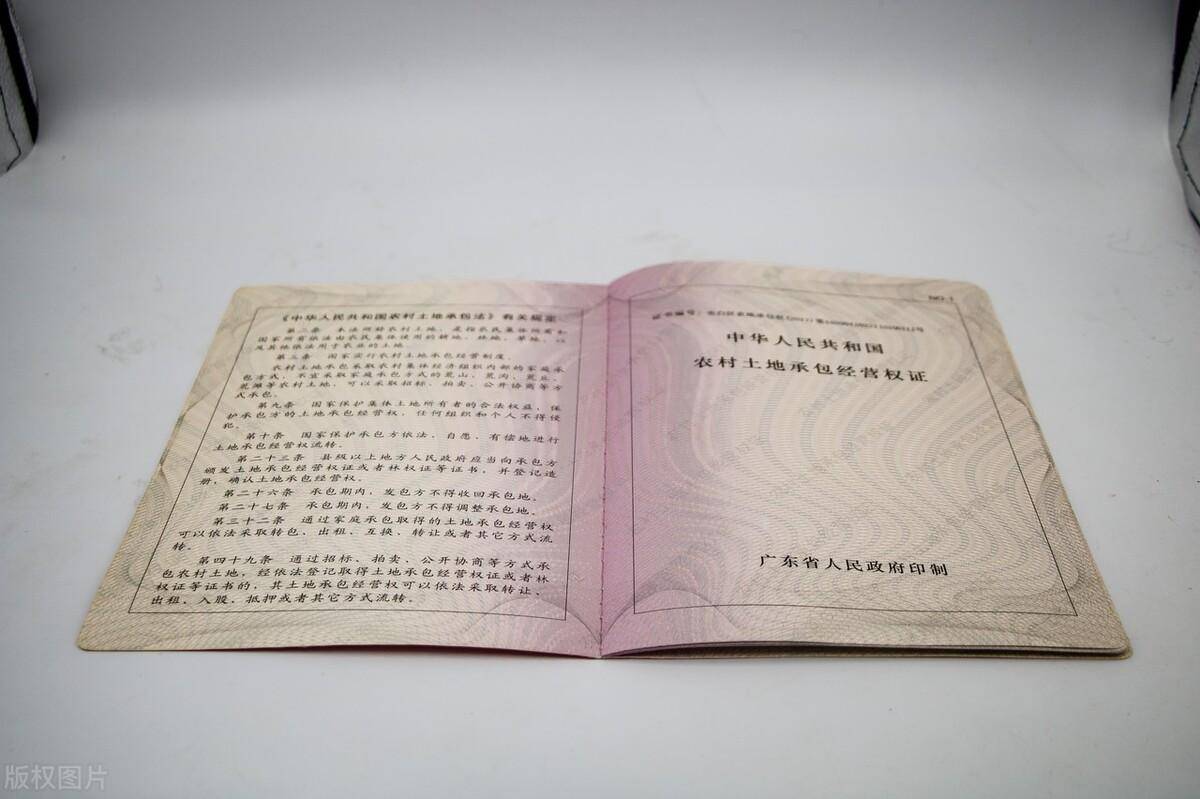 《中华人民共和国农村土地承包法》有关规定
第二条 本法所称农村土地，是指农民集体所有和
国家所有依法由农民集体使用的耕地、林地、草地，以
及其他依法用于农业的土地。
第三条 国家实行农村土地承包经营制度。
农村土地承包采取农村集体经济组织内部的家庭承
包方式，不宜采取家庭承包方式的荒山、荒沟、荒丘、
荒滩等农村土地，可以采取招标、拍卖、公开协商等方
式承包。
第九条 国家保护集体土地所有者的合法权益，保
护承包方的土地承包经营权，任何组织和个人不得侵
犯。
第十条 国家保护承包方依法、自愿、有偿地进行
土地承包经营权流转。
第二十三条 县级以上地方人民政府应当向承包方
颁发土地承包经营权证或者林权证等证书，并登记造
册，确认土地承包经营权。
第二十六条 承包期内，发包方不得收回承包地。
第二十七条 承包期内，发包方不得调整承包地。
第三十二条 通过家庭承包取得的土地承包经营权
可以依法采取转包、出租、互换、转让或者其它方式流
转。
第四十九条 通过招标、拍卖、公开协商等方式承
包农村土地，经依法登记取得土地承包经营权证或者林
权证等证书的，其土地承包经营权可以依法采取转让、
出租、入股、抵押或者其它方式流转。
NO·1
证书编号：
中华人民共和国
农村土地承包经营权证
广东省人民政府印制
版权图片